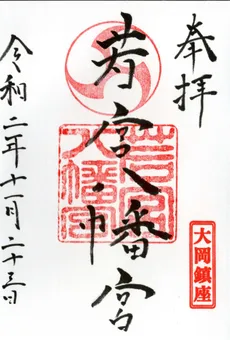 奉拝
若宮八幡宮
若宮八幡宮
大岡鎮座
令和二年十一月二十三日